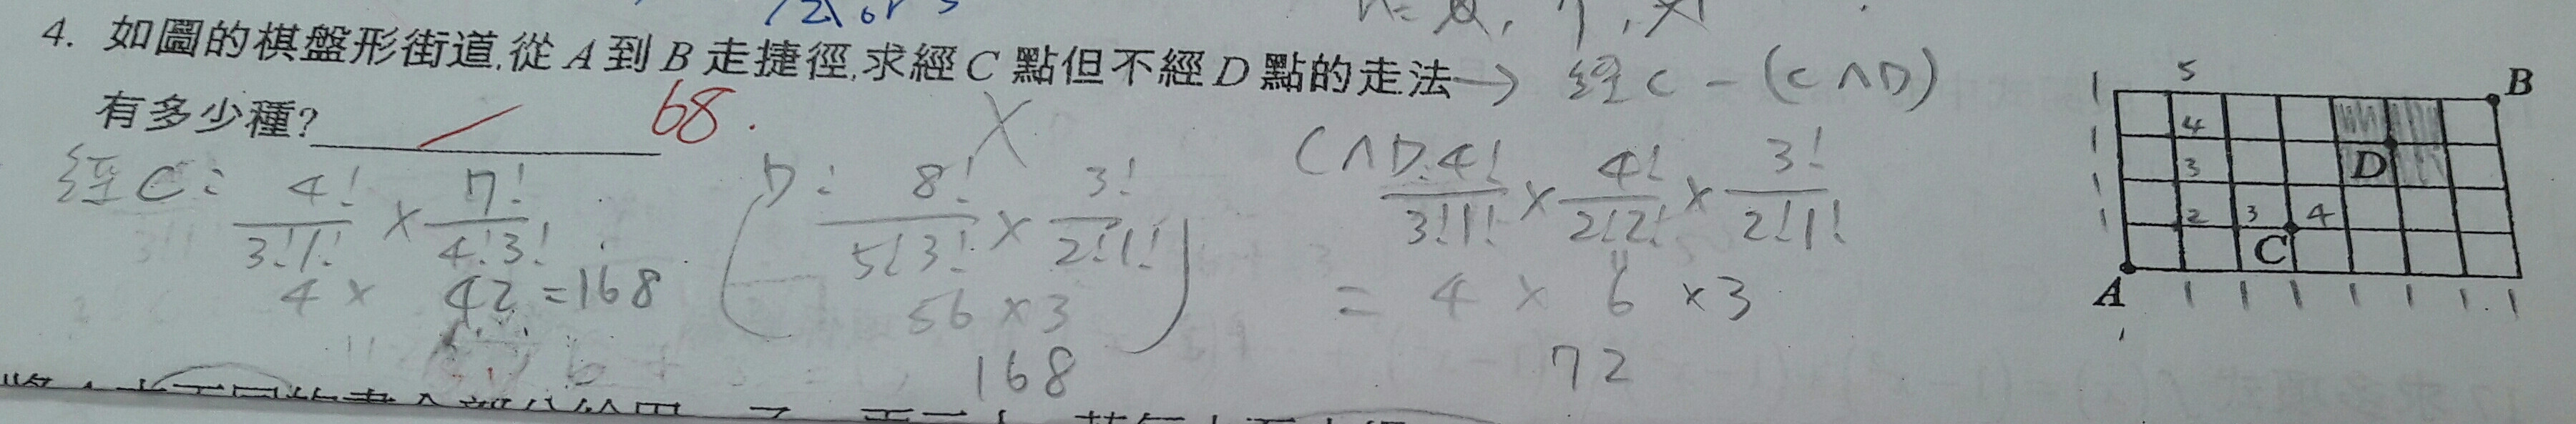 4. 如圖的棋盤形街道,從A到B走捷徑,求經C點但不經D點的走法→ 經C-(C∧D)
有多少種? 68.
經C: 4!/3!1! × 7!/4!3!
4 × 42 = 168
D: 8!/5!3! × 3!/2!1!
56 × 3
168
C∧D: 4!/3!1! × 4!/2!2! × 3!/2!1!
= 4 × 6 × 3
72
5
B
1
4
1
3
D
1
2 3 4
1
C
A
1 1 1 1 1 1 1